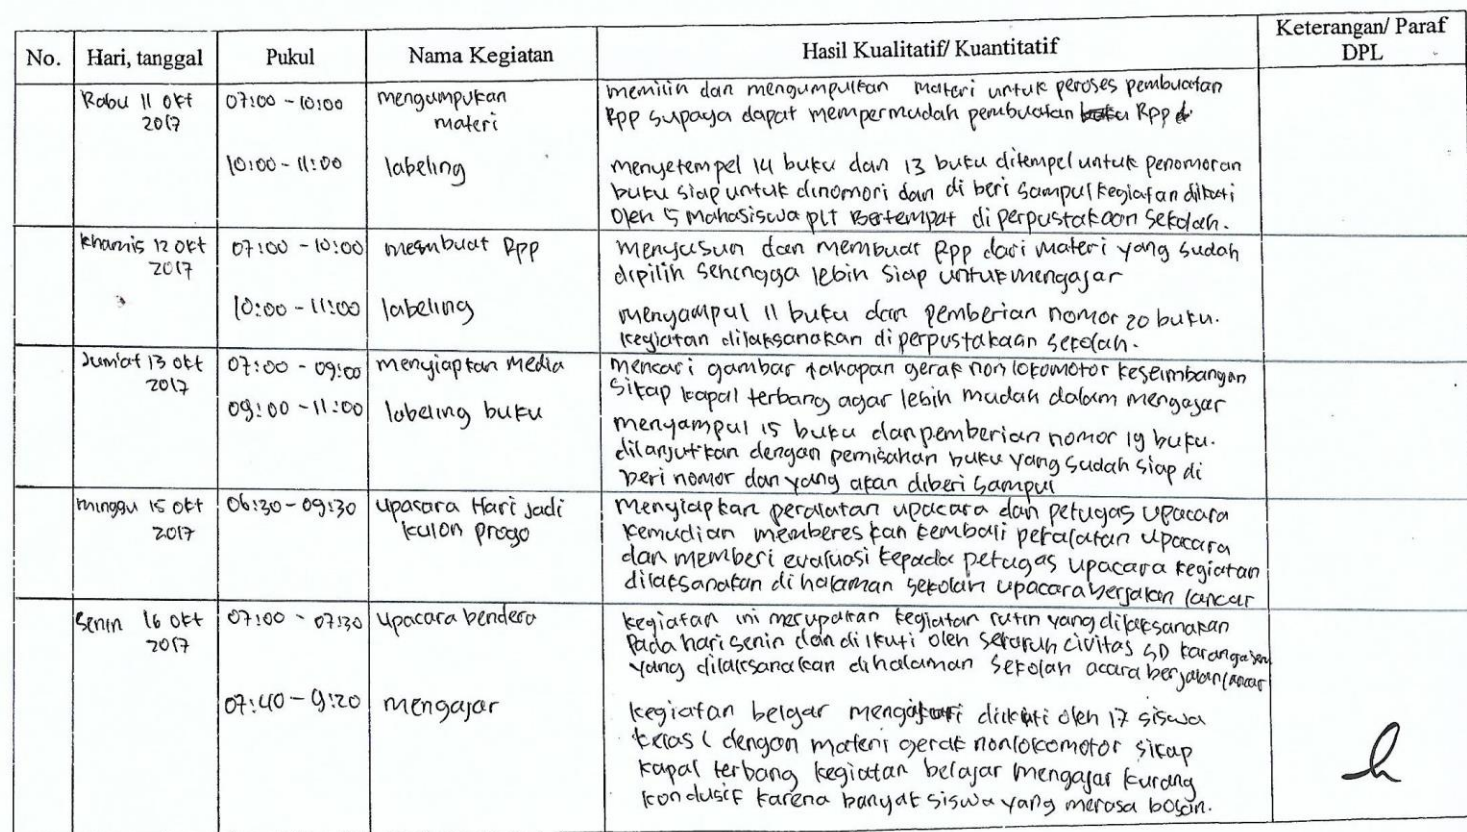 No. Hari, tanggal Pukul Nama Kegiatan Hasil Kualitatif/ Kuantitatif Keterangan/ Paraf DPL
Rabu 11 Okt 2017
07:00 - 10:00
mengumpukan
materi
memilih dan mengumpulkan materi untuk peroses pembuatan
Rpp supaya dapat mempermudah pembuatan Rpp
10:00 - 11:00
labeling
menyetempel 14 buku dan 13 buku ditempel untuk penomoran
buku siap untuk dinomori dan di beri sampul kegiatan diikuti
oleh 5 Mahasiswa plt Bertempat di perpustakaan sekolah.
khamis 12 okt
2017
07:00 - 10:00
membuat Rpp
menyusun dan membuat Rpp dari materi yang sudah
dipilih sehingga lebih siap untuk mengajar
10:00 - 11:00
labeling
menyampul 11 buku dan pemberian nomor 20 buku.
kegiatan dilaksanakan di perpustakaan sekolah.
Jum'at 13 okt
2017
07:00 - 09:00
menyiapkan media
mencari gambar tahapan gerak non lokomotor keseimbangan
sikap kapal terbang agar lebih mudah dalam mengajar
09:00 - 11:00
labeling buku
menyampul 15 buku dan pemberian nomor 19 buku.
dilanjutkan dengan pemisahan buku yang sudah siap di
beri nomor dan yang akan diberi sampul
minggu 15 okt
2017
06:30 - 09:30
upacara Hari jadi
kulon progo
Menyiapkan peralatan upacara dan petugas upacara
kemudian membereskan kembali peralatan upacara
dan memberi evaluasi kepada petugas upacara kegiatan
dilaksanakan di halaman sekolah upacara berjalan lancar
Senin 16 okt
2017
07:00 - 07:30
upacara bendera
kegiatan ini merupakan kegiatan rutin yang dilaksanakan
Pada hari senin dan di ikuti oleh seluruh civitas SD
yang dilaksanakan dihalaman sekolah acara berjalan lancar
07:40 - 9:20
mengajar
kegiatan belajar diikuti oleh 17 siswa
kelas 1 dengan materi gerak nonlokomotor sikap
kapal terbang kegiatan belajar mengajar kurang
kondusif karena banyak siswa yang merasa bosan.